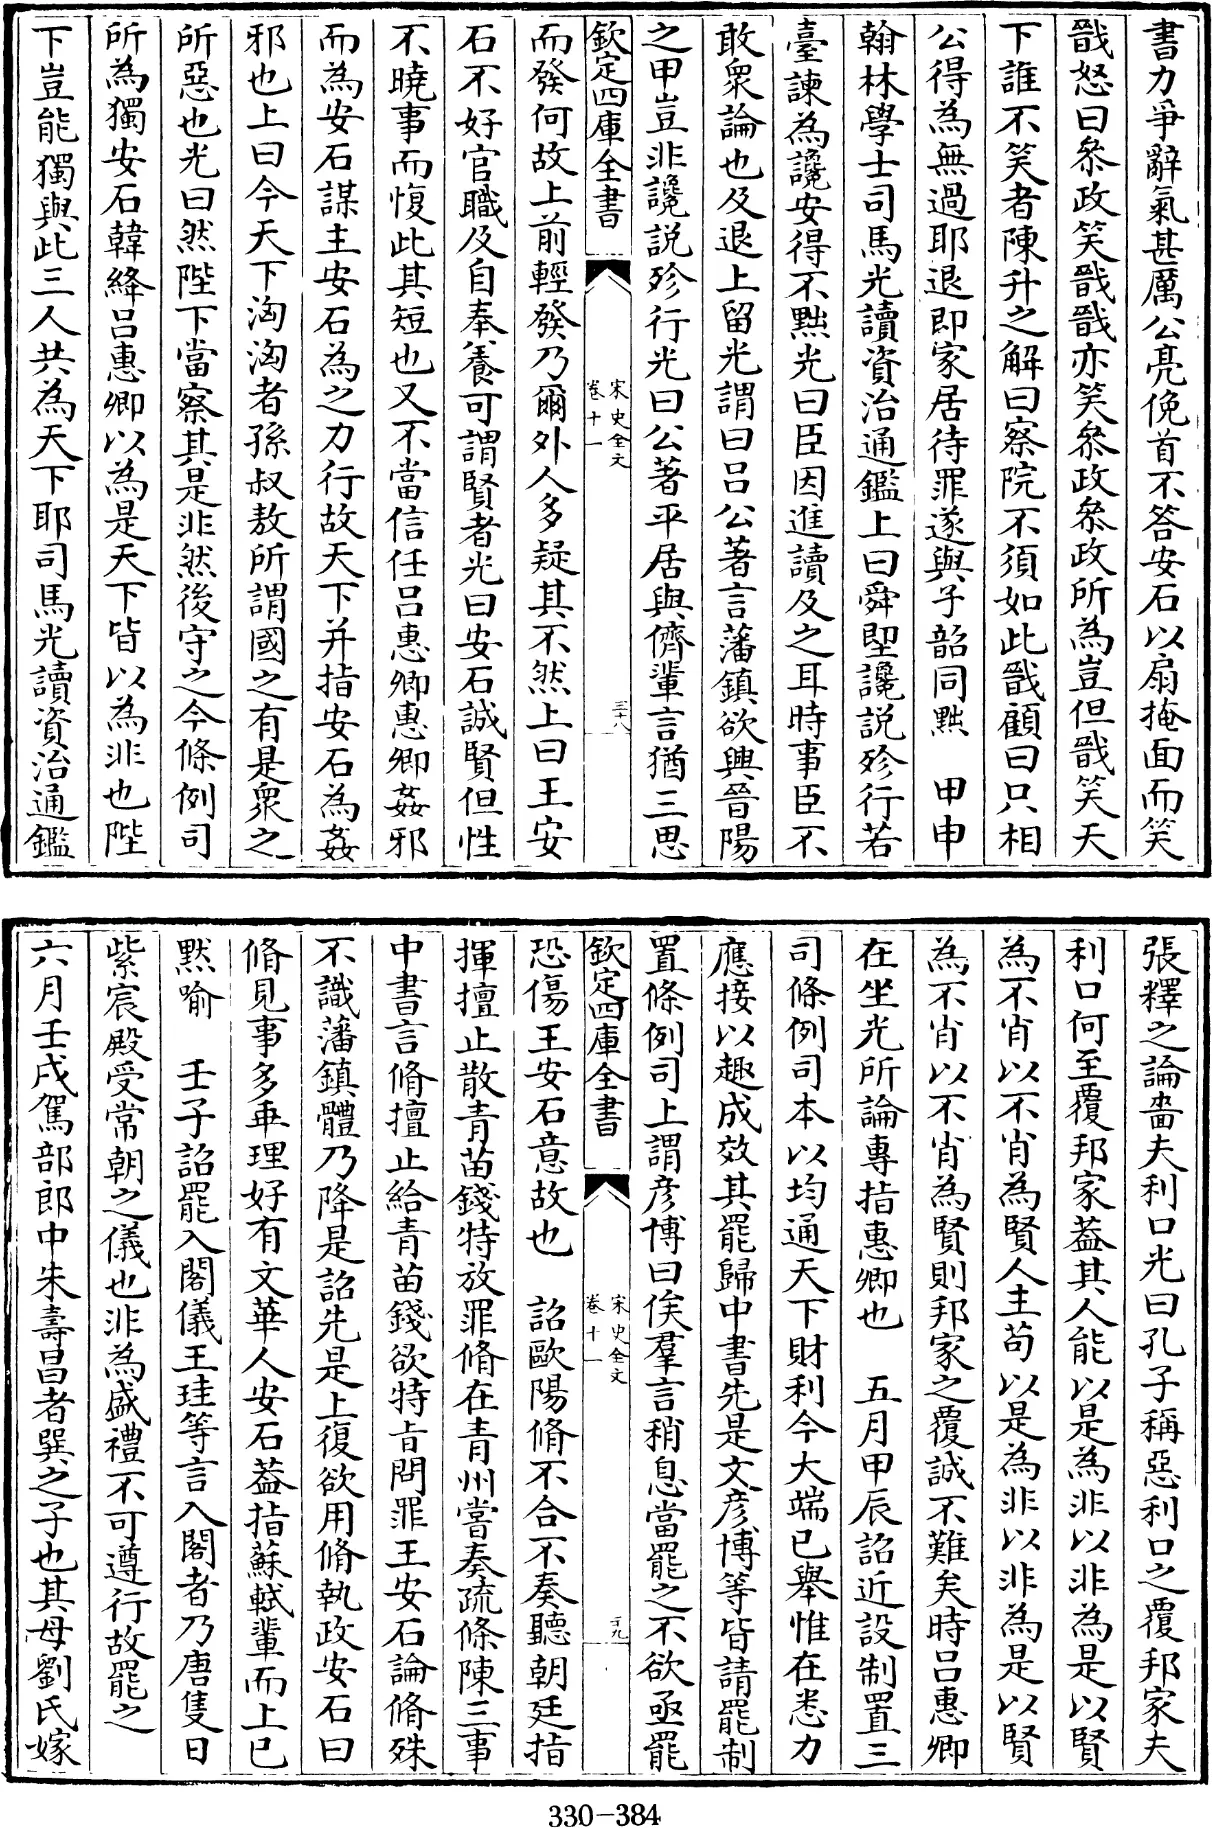 書力爭辭氣甚厲公亮俛首不答安石以扇掩面而笑
戩怒曰叅政笑戩戩亦笑叅政叅政所為豈但戩笑天
下誰不笑者陳升之解曰察院不須如此戩顧曰只相
公得為無過耶退即家居待罪遂與子韶同黜　甲申
翰林學士司馬光讀資治通鑑上曰舜堲讒說殄行若
臺諫為讒安得不黜光曰臣因進讀及之耳時事臣不
敢衆論也及退上留光謂曰呂公著言藩鎮欲興晉陽
之甲豈非讒說殄行光曰公著平居與儕輩言猶三思
欽定四庫全書
宋史全文
卷十一
三十八
而發何故上前輕發乃爾外人多疑其不然上曰王安
石不好官職及自奉養可謂賢者光曰安石誠賢但性
不曉事而愎此其短也又不當信任呂惠卿惠卿姦邪
而為安石謀主安石為之力行故天下并指安石為姦
邪也上曰今天下洶洶者孫叔敖所謂國之有是衆之
所惡也光曰然陛下當察其是非然後守之今條例司
所為獨安石韓絳呂惠卿以為是天下皆以為非也陛
下豈能獨與此三人共為天下耶司馬光讀資治通鑑
張釋之論嗇夫利口光曰孔子稱惡利口之覆邦家夫
利口何至覆邦家葢其人能以是為非以非為是以賢
為不肖以不肖為賢人主苟以是為非以非為是以賢
為不肖以不肖為賢則邦家之覆誠不難矣時呂惠卿
在坐光所論專指惠卿也　五月甲辰詔近設制置三
司條例司本以均通天下財利今大端已舉惟在悉力
應接以趣成效其罷歸中書先是文彦博等皆請罷制
置條例司上謂彦博曰俟羣言稍息當罷之不欲亟罷
欽定四庫全書
宋史全文
卷十一
三十九
恐傷王安石意故也　詔歐陽脩不合不奏聽朝廷指
揮擅止散青苗錢特放罪脩在青州嘗奏疏條陳三事
中書言脩擅止給青苗錢欲特旨問罪王安石論脩殊
不識藩鎮體乃降是詔先是上復欲用脩執政安石曰
脩見事多乖理好有文華人安石葢指蘇軾輩而上已
默喻　壬子詔罷入閣儀王珪等言入閣者乃唐隻日
紫宸殿受常朝之儀也非為盛禮不可遵行故罷之
六月壬戌駕部郎中朱壽昌者巽之子也其母劉氏嫁
330-384